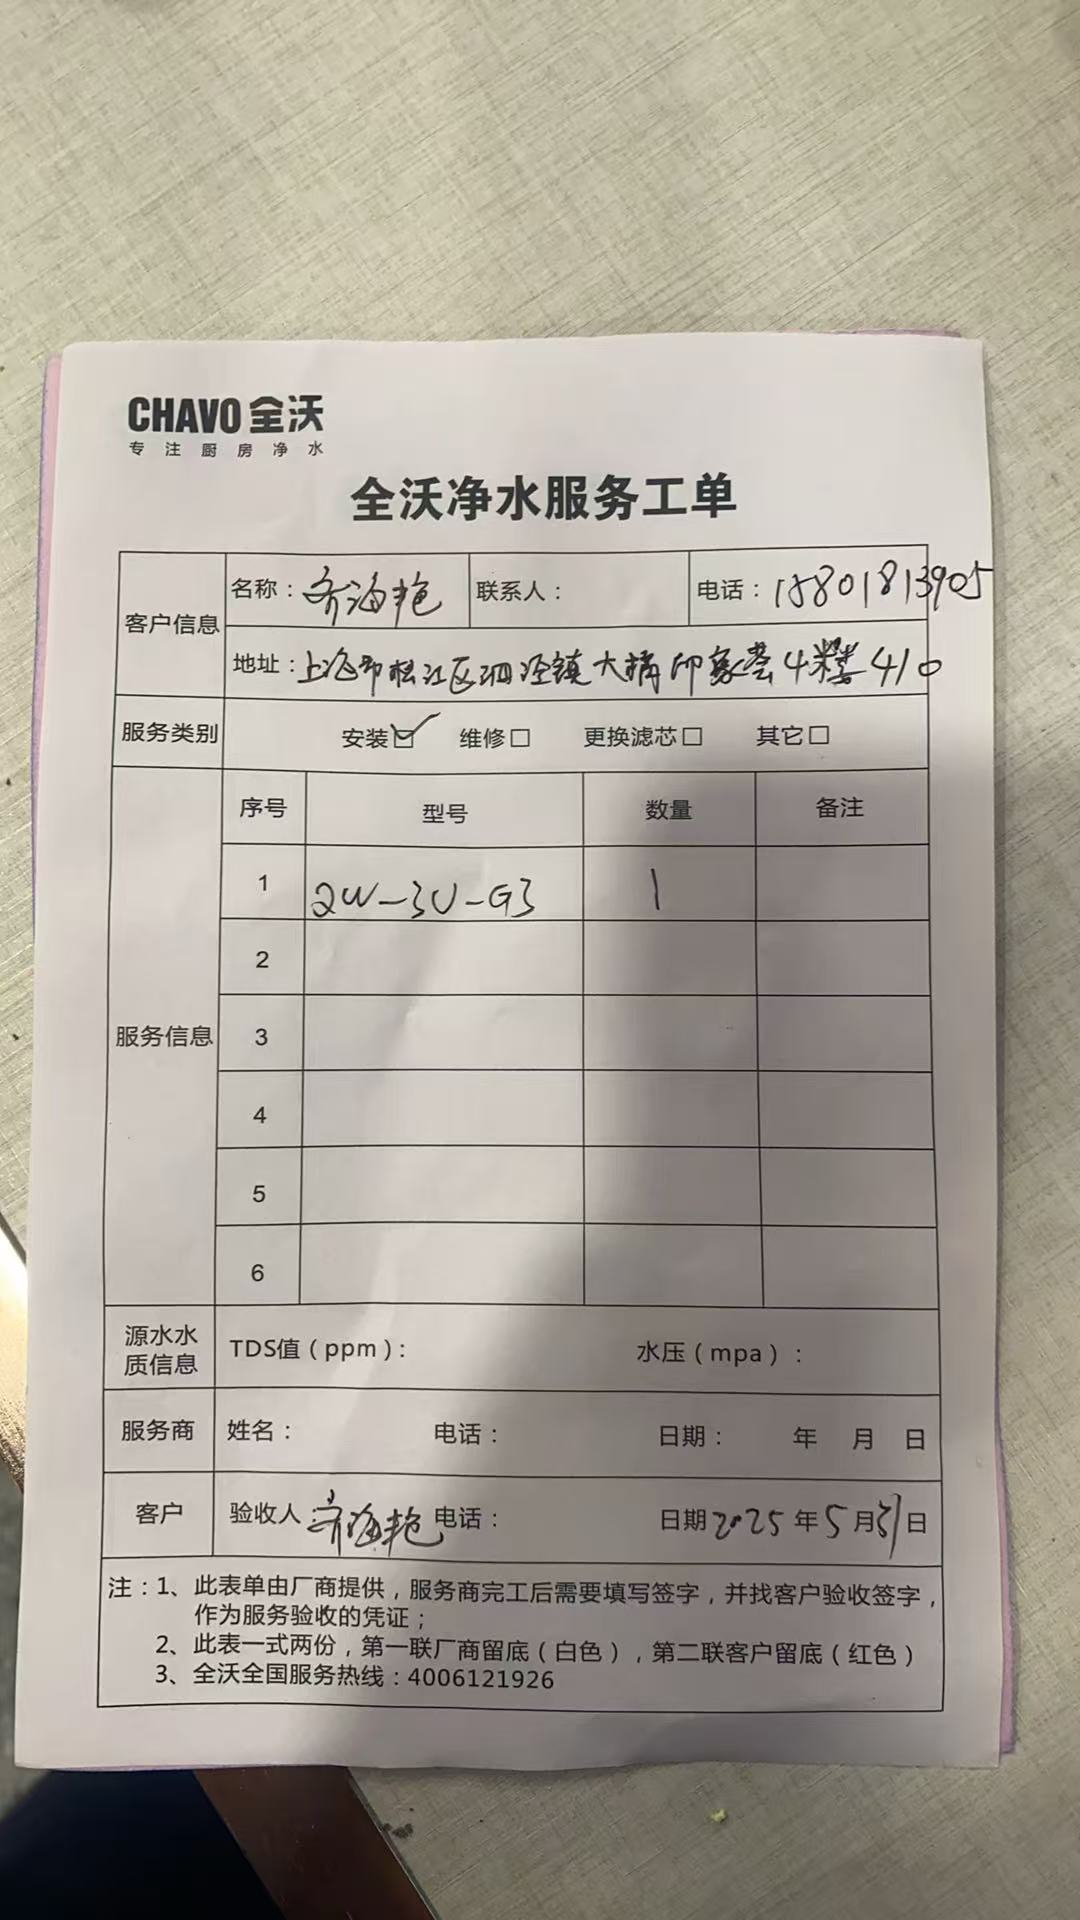 CHAVO 全沃
专注厨房净水
全沃净水服务工单
客户信息
名称：齐海艳 联系人： 电话：15801813905
地址：上海市松江区泗泾镇大橘印象荟4楼410
服务类别 安装☑ 维修□ 更换滤芯□ 其它□
服务信息
序号 型号 数量 备注
1 QW-3U-G3 1
2
3
4
5
6
源水水质信息 TDS值（ppm）： 水压（mpa）：
服务商 姓名： 电话： 日期： 年 月 日
客户 验收人 齐海艳 电话： 日期 2025年5月31日
注：1、此表单由厂商提供，服务商完工后需要填写签字，并找客户验收签字，
作为服务验收的凭证；
2、此表一式两份，第一联厂商留底（白色），第二联客户留底（红色）
3、全沃全国服务热线：4006121926